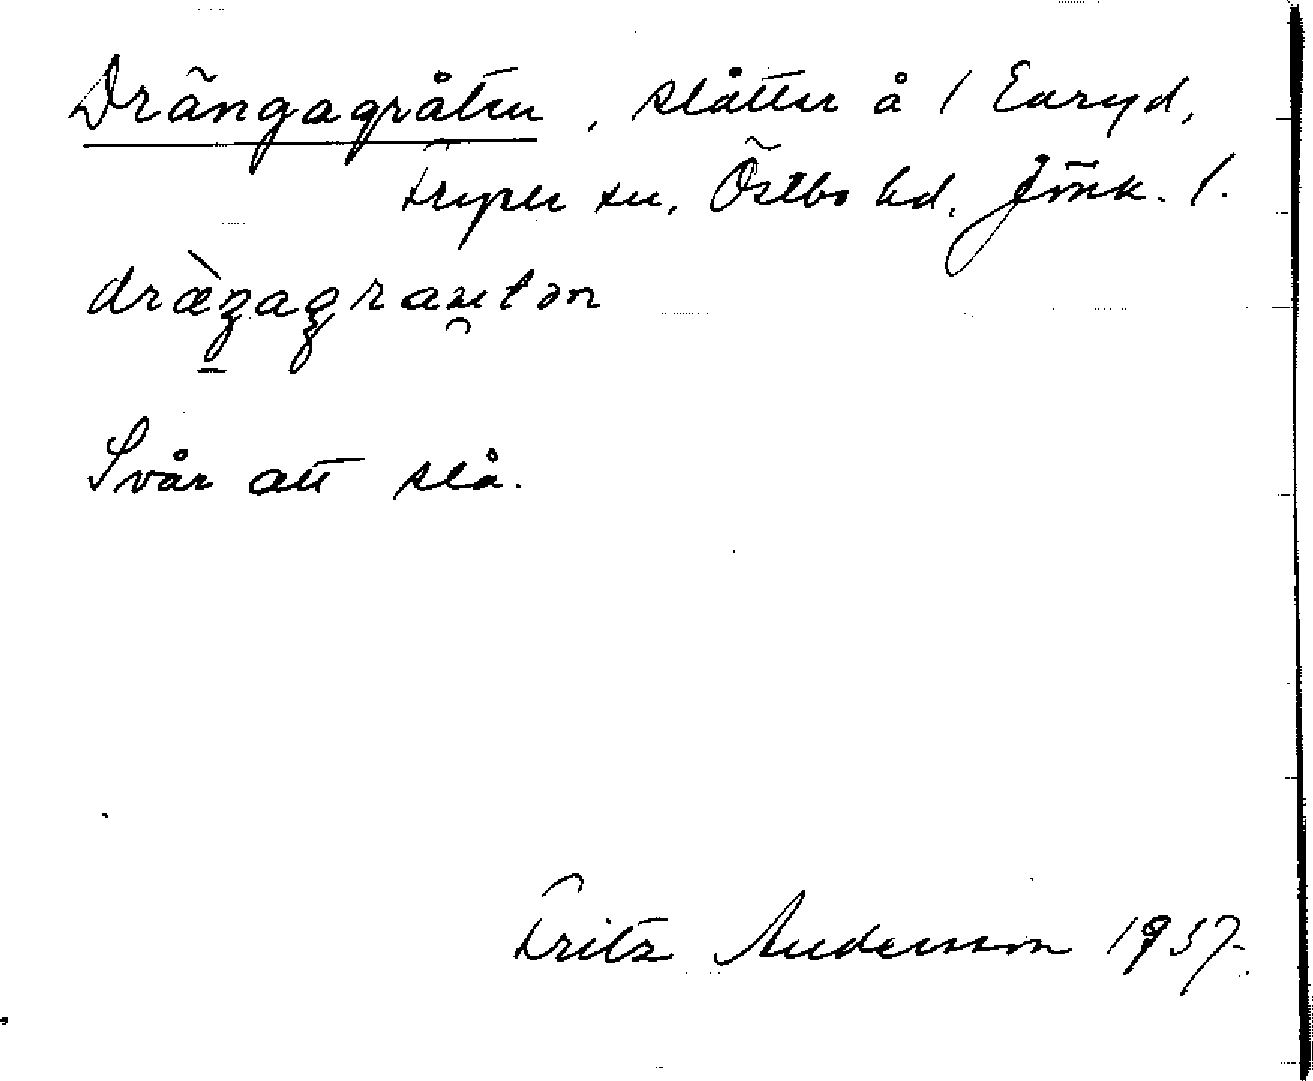 Drängagråten, slåtter å 1 Earyd,
Fryele sn, Östbo hd, Jönk. l.
dræ̀ŋagraʉtən
Svår att slå.
Fritz Andersson 1937.